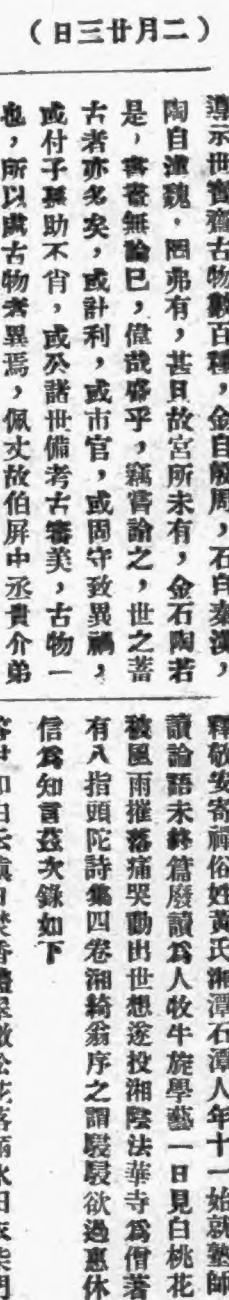 （二月廿三日）
導示世寶齋古物數百種，金自殷周，石自秦漢，
陶自漣魏，罔弗有，甚日故宮所未有，金石陶若
是，書畫無論已，偉哉盛乎，竊嘗論之，世之蓄
古者亦多矣，或計利，或市官，或固守致異禍，
或付子孫助不肖，或公諸世備考古審美，古物一
也，所以處古物者異焉，佩丈故伯屏中丞貴介弟
釋敬安寄禪俗姓黃氏湘潭石潭人年十一始就塾師
讀論語未終篇廢讀爲人牧牛旋學藝一日見白桃花
被風雨摧落痛哭動出世想遂投湘陰法華寺爲僧著
有八指頭陀詩集四卷湘綺翁序之謂駸駸欲過惠休
信爲知言茲次錄如下